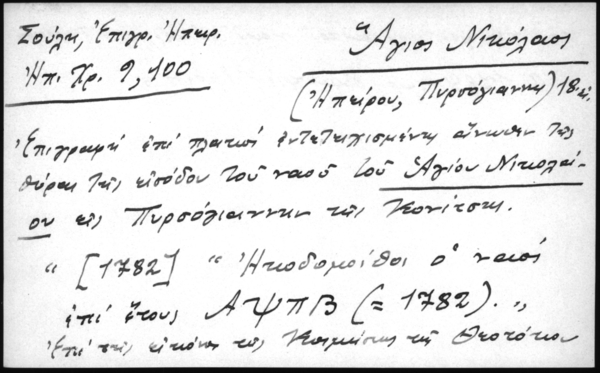 Σούλη, Ἐπιγρ. Ἠπειρ.
Ἠπ. Χρ. 9, 100
Ἅγιος Νικόλαος
(Ἠπείρου, Πυρσόγιαννη) 18 αἰ.
Ἐπιγραφή ἐπί πλακός ἐντετειχισμένης ἄνωθεν τῆς
θύρας τῆς εἰσόδου τοῦ ναοῦ τοῦ Ἁγίου Νικολά-
ου εἰς Πυρσόγιαννην τῆς Κονίτσης.
" [1782] " Ἠκοδομοίθοι ὁ ναός
ἐπί ἔτους ΑΨΠΒ (= 1782). "
Ἐπί τῆς εἰκόνος τῆς Κοιμήσεως τῆς Θεοτόκου